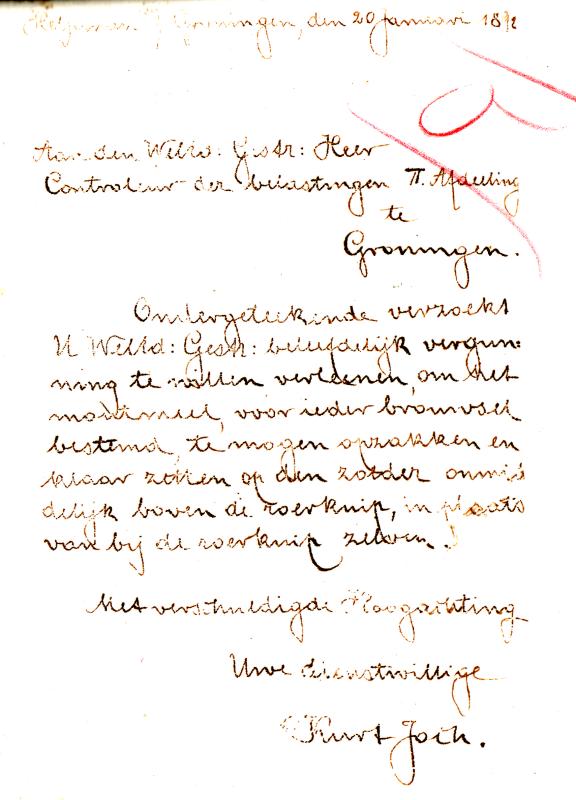 Helpman b/ Groningen, den 20 Januari 18
Aan den WelEd: Gestr: Heer
Controleur der belastingen II. Afdeeling
te
Groningen.
Ondergeteekende verzoekt
U WelEd: Gestr: beleefdelijk vergun:
ning te willen verleenen, om het
moutmeel, voor ieder brouwsel
bestemd, te mogen opzakken en
klaar zetten op den zolder onmid
delijk boven de roerkuip, in plaats
van bij de roerkuip zelven.
Met verschuldigde Hoogachting
Uwe dienstwillige
Kurt Joch.